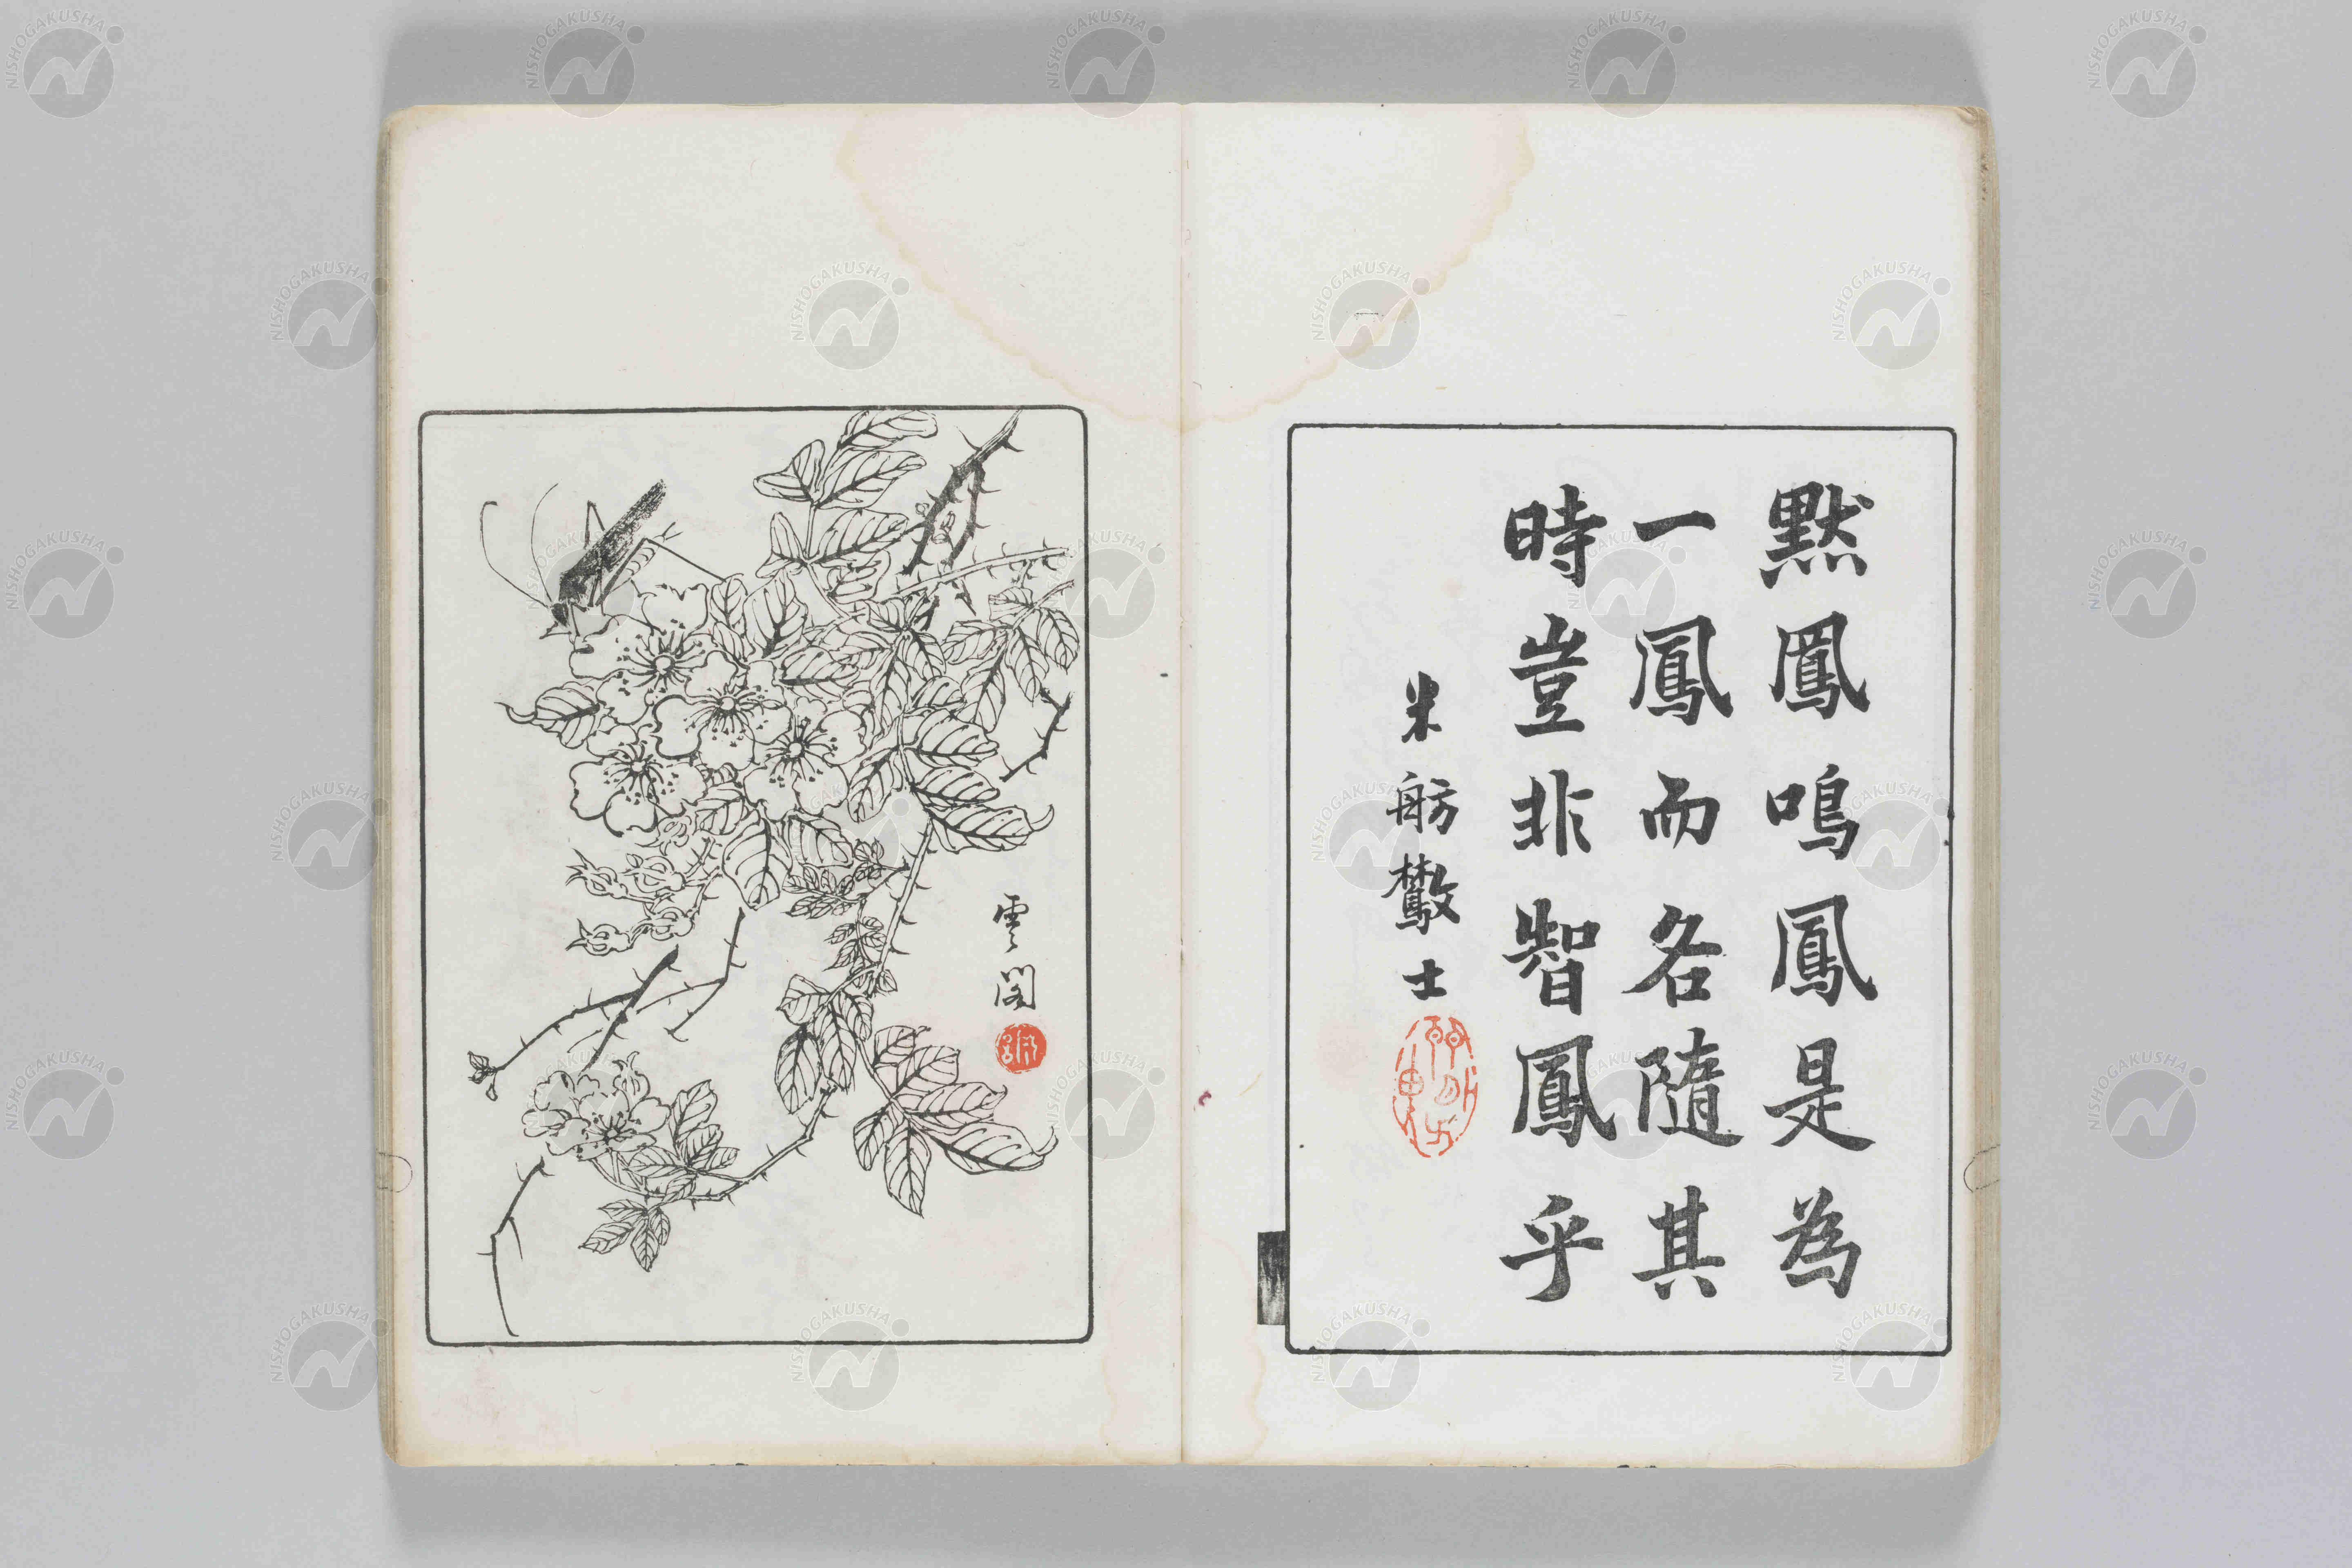 黙鳳鳴鳳是為
一鳳而各隨其
時豈非智鳳乎
米舫士
雲閣
NISHOGAKUSHA